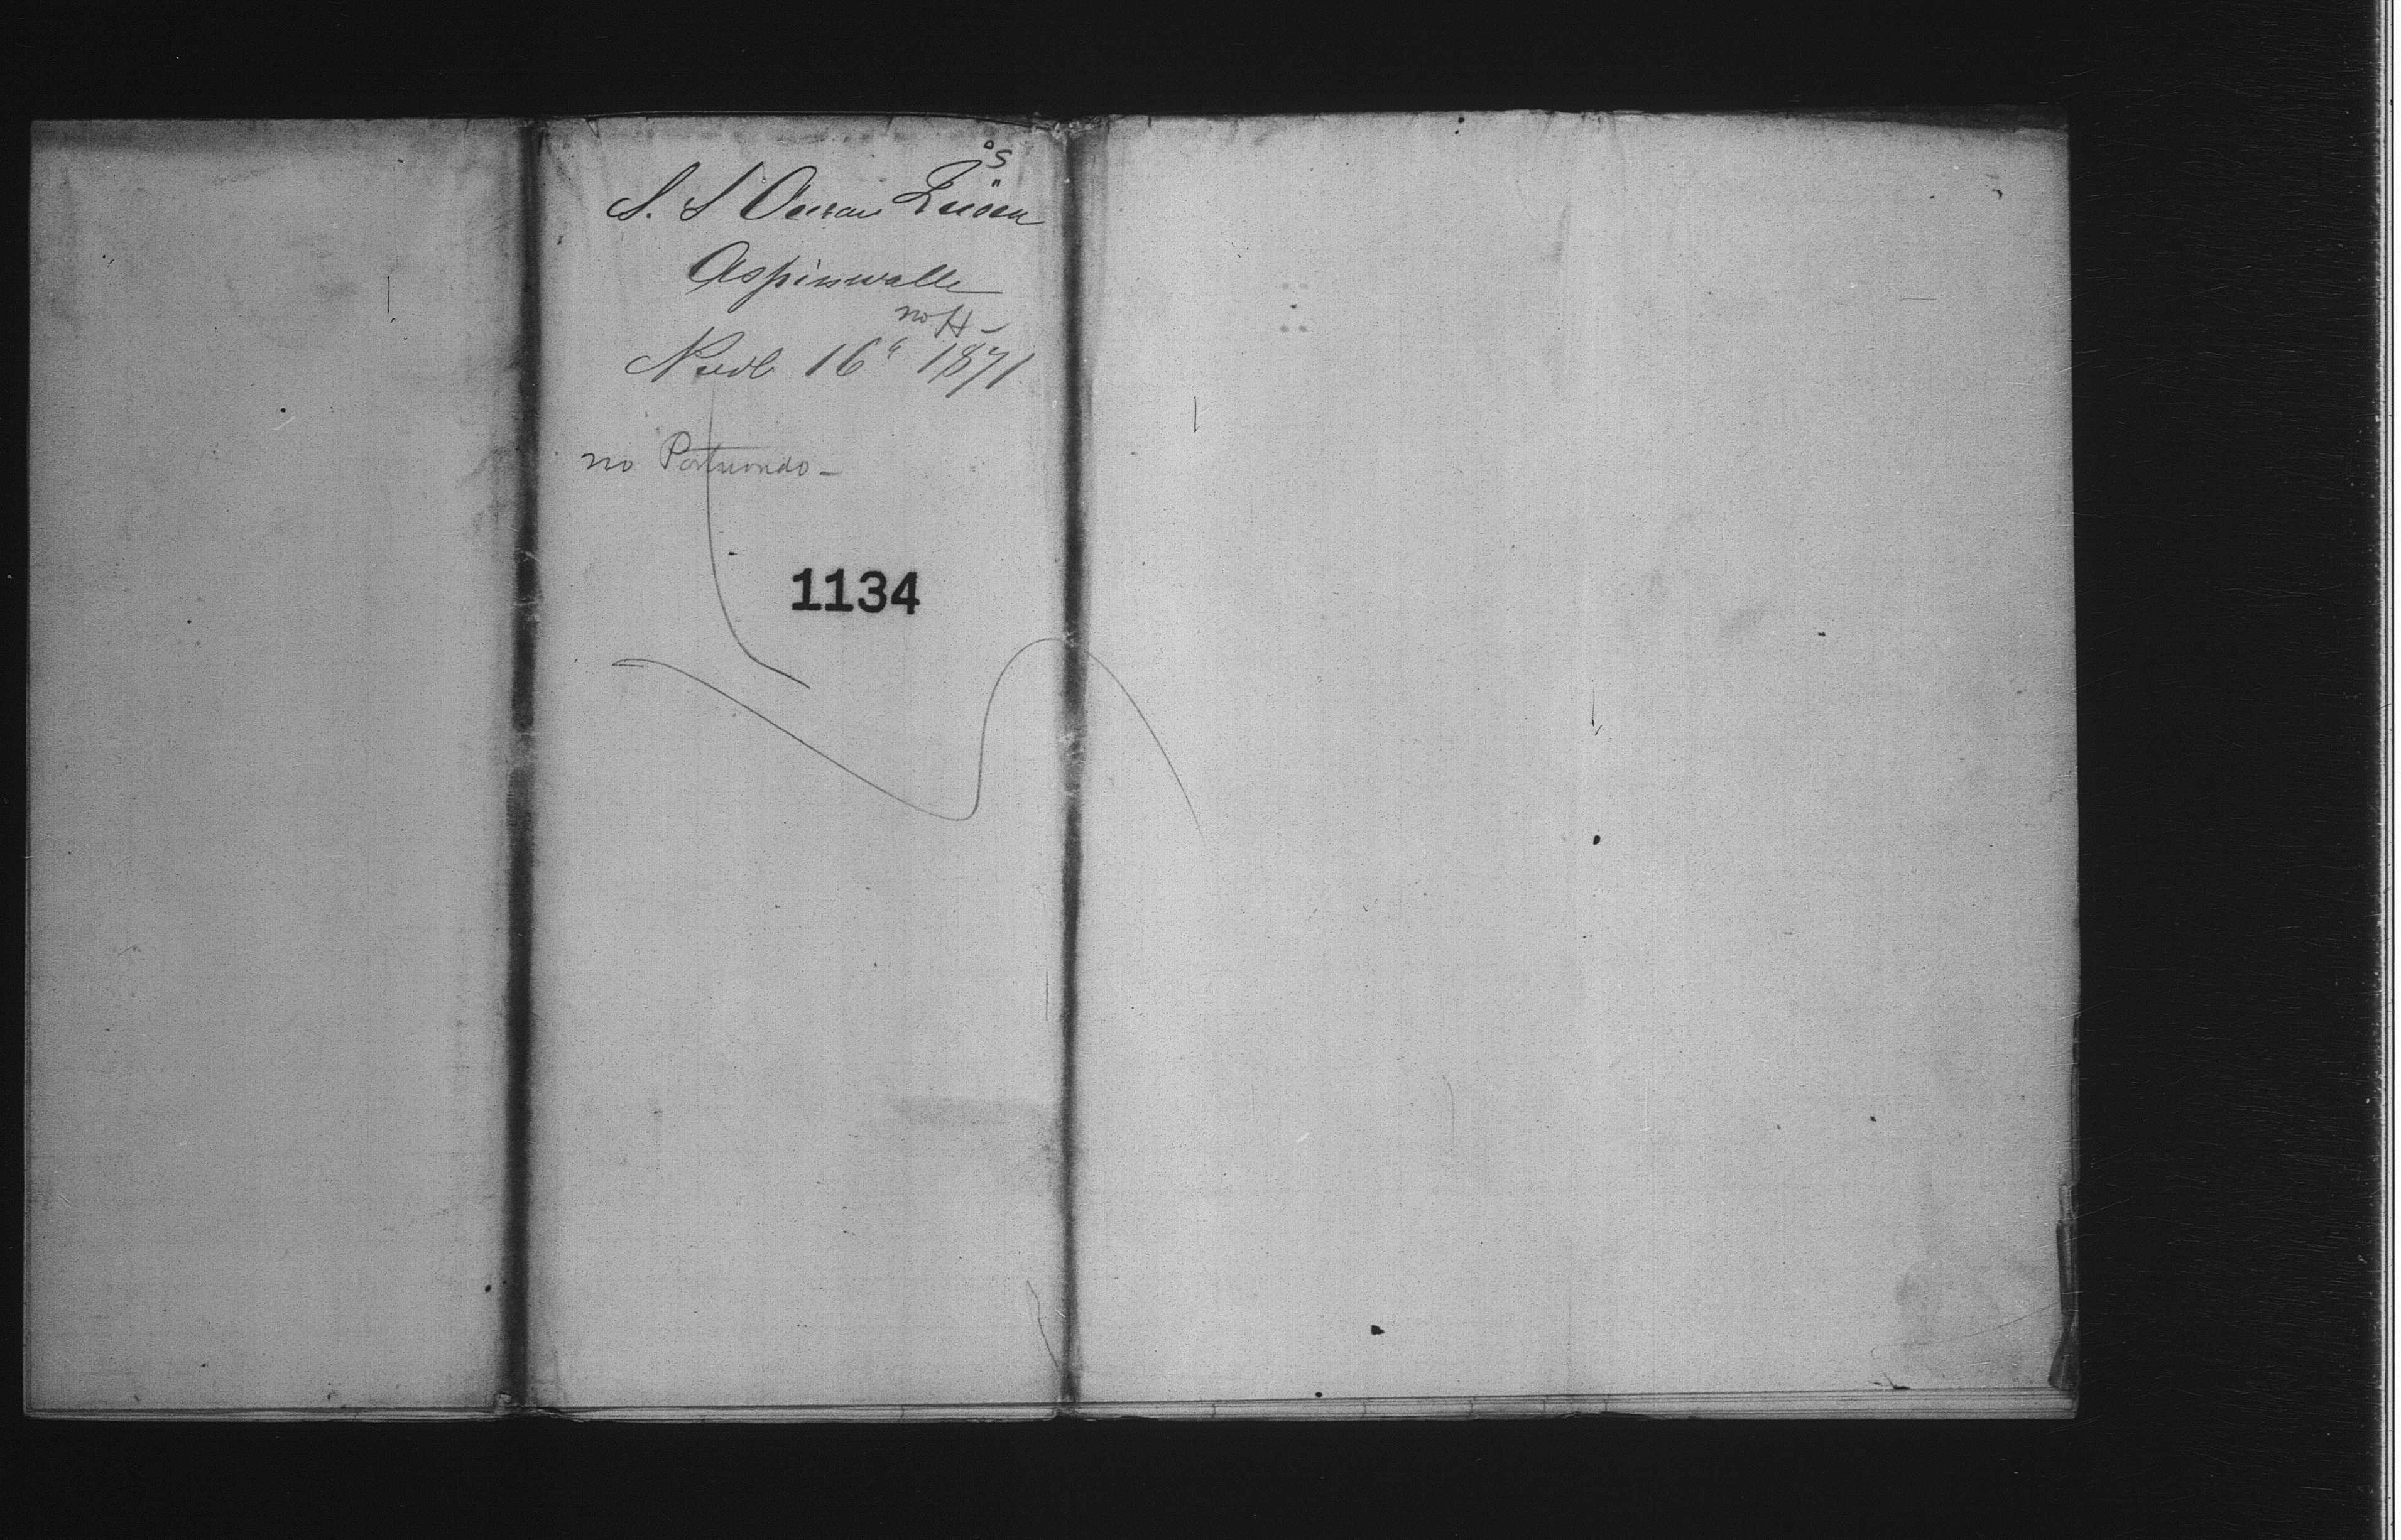 S. S Ocean Queen
Aspinwalle
no H-
16" 1871
no Portuondo-
1134